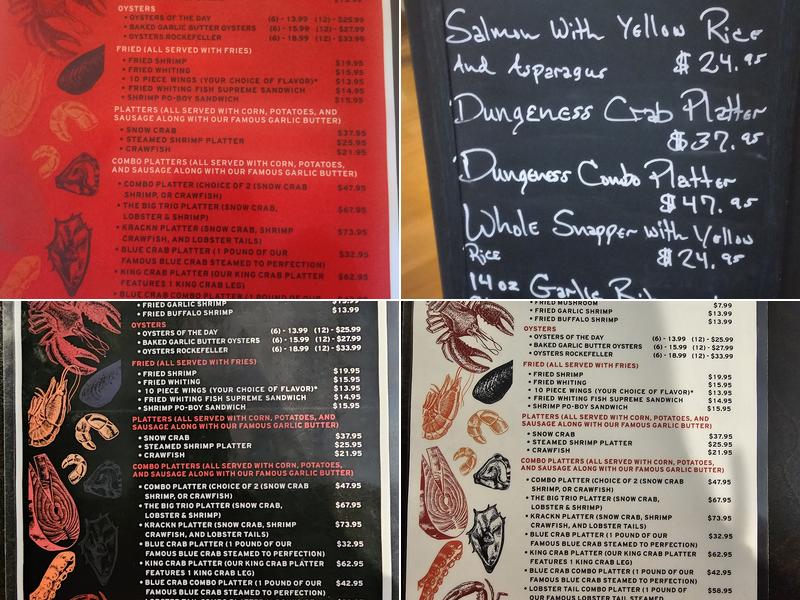 OYSTERS
• OYSTERS OF THE DAY (6) - 13.99 (12) - $25.99
• BAKED GARLIC BUTTER OYSTERS (6) - 15.99 (12) - $27.99
• OYSTERS ROCKEFELLER (6) - 18.99 (12) - $33.99
FRIED (ALL SERVED WITH FRIES)
• FRIED SHRIMP $19.95
• FRIED WHITING $15.95
• 10 PIECE WINGS (YOUR CHOICE OF FLAVOR)* $13.95
• FRIED WHITING FISH SUPREME SANDWICH $14.95
• SHRIMP PO-BOY SANDWICH $15.95
PLATTERS (ALL SERVED WITH CORN, POTATOES, AND
SAUSAGE ALONG WITH OUR FAMOUS GARLIC BUTTER)
• SNOW CRAB $37.95
• STEAMED SHRIMP PLATTER $25.95
• CRAWFISH $21.95
COMBO PLATTERS (ALL SERVED WITH CORN, POTATOES,
AND SAUSAGE ALONG WITH OUR FAMOUS GARLIC BUTTER)
• COMBO PLATTER (CHOICE OF 2 (SNOW CRAB $47.95
SHRIMP, OR CRAWFISH)
• THE BIG TRIO PLATTER (SNOW CRAB, $67.95
LOBSTER & SHRIMP)
• KRACKN PLATTER (SNOW CRAB, SHRIMP $73.95
CRAWFISH, AND LOBSTER TAILS)
• BLUE CRAB PLATTER (1 POUND OF OUR $32.95
FAMOUS BLUE CRAB STEAMED TO PERFECTION)
• KING CRAB PLATTER (OUR KING CRAB PLATTER $62.95
FEATURES 1 KING CRAB LEG)
• BLUE CRAB COMBO PLATTER (1 POUND OF OUR
Salmon With Yellow Rice
And Asparagus $24.95
Dungeness Crab Platter
$37.95
Dungeness Combo Platter
$47.95
Whole Snapper with Yellow
Rice $24.95
14oz Garlic
• FRIED GARLIC SHRIMP $13.99
• FRIED BUFFALO SHRIMP $13.99
OYSTERS
• OYSTERS OF THE DAY (6) - 13.99 (12) - $25.99
• BAKED GARLIC BUTTER OYSTERS (6) - 15.99 (12) - $27.99
• OYSTERS ROCKEFELLER (6) - 18.99 (12) - $33.99
FRIED (ALL SERVED WITH FRIES)
• FRIED SHRIMP $19.95
• FRIED WHITING $15.95
• 10 PIECE WINGS (YOUR CHOICE OF FLAVOR)* $13.95
• FRIED WHITING FISH SUPREME SANDWICH $14.95
• SHRIMP PO-BOY SANDWICH $15.95
PLATTERS (ALL SERVED WITH CORN, POTATOES, AND
SAUSAGE ALONG WITH OUR FAMOUS GARLIC BUTTER)
• SNOW CRAB $37.95
• STEAMED SHRIMP PLATTER $25.95
• CRAWFISH $21.95
COMBO PLATTERS (ALL SERVED WITH CORN, POTATOES,
AND SAUSAGE ALONG WITH OUR FAMOUS GARLIC BUTTER)
• COMBO PLATTER (CHOICE OF 2 (SNOW CRAB $47.95
SHRIMP, OR CRAWFISH)
• THE BIG TRIO PLATTER (SNOW CRAB, $67.95
LOBSTER & SHRIMP)
• KRACKN PLATTER (SNOW CRAB, SHRIMP $73.95
CRAWFISH, AND LOBSTER TAILS)
• BLUE CRAB PLATTER (1 POUND OF OUR $32.95
FAMOUS BLUE CRAB STEAMED TO PERFECTION)
• KING CRAB PLATTER (OUR KING CRAB PLATTER $62.95
FEATURES 1 KING CRAB LEG)
• BLUE CRAB COMBO PLATTER (1 POUND OF OUR $42.95
FAMOUS BLUE CRAB STEAMED TO PERFECTION)
• FRIED MUSHROOM $7.99
• FRIED GARLIC SHRIMP $13.99
• FRIED BUFFALO SHRIMP $13.99
OYSTERS
• OYSTERS OF THE DAY (6) - 13.99 (12) - $25.99
• BAKED GARLIC BUTTER OYSTERS (6) - 15.99 (12) - $27.99
• OYSTERS ROCKEFELLER (6) - 18.99 (12) - $33.99
FRIED (ALL SERVED WITH FRIES)
• FRIED SHRIMP $19.95
• FRIED WHITING $15.95
• 10 PIECE WINGS (YOUR CHOICE OF FLAVOR)* $13.95
• FRIED WHITING FISH SUPREME SANDWICH $14.95
• SHRIMP PO-BOY SANDWICH $15.95
PLATTERS (ALL SERVED WITH CORN, POTATOES, AND
SAUSAGE ALONG WITH OUR FAMOUS GARLIC BUTTER)
• SNOW CRAB $37.95
• STEAMED SHRIMP PLATTER $25.95
• CRAWFISH $21.95
COMBO PLATTERS (ALL SERVED WITH CORN, POTATOES,
AND SAUSAGE ALONG WITH OUR FAMOUS GARLIC BUTTER)
• COMBO PLATTER (CHOICE OF 2 (SNOW CRAB $47.95
SHRIMP, OR CRAWFISH)
• THE BIG TRIO PLATTER (SNOW CRAB, $67.95
LOBSTER & SHRIMP)
• KRACKN PLATTER (SNOW CRAB, SHRIMP $73.95
CRAWFISH, AND LOBSTER TAILS)
• BLUE CRAB PLATTER (1 POUND OF OUR $32.95
FAMOUS BLUE CRAB STEAMED TO PERFECTION)
• KING CRAB PLATTER (OUR KING CRAB PLATTER $62.95
FEATURES 1 KING CRAB LEG)
• BLUE CRAB COMBO PLATTER (1 POUND OF OUR $42.95
FAMOUS BLUE CRAB STEAMED TO PERFECTION)
• LOBSTER TAIL COMBO PLATTER (1 POUND OF $58.95
OUR FAMOUS LOBSTER TAIL STEAMED